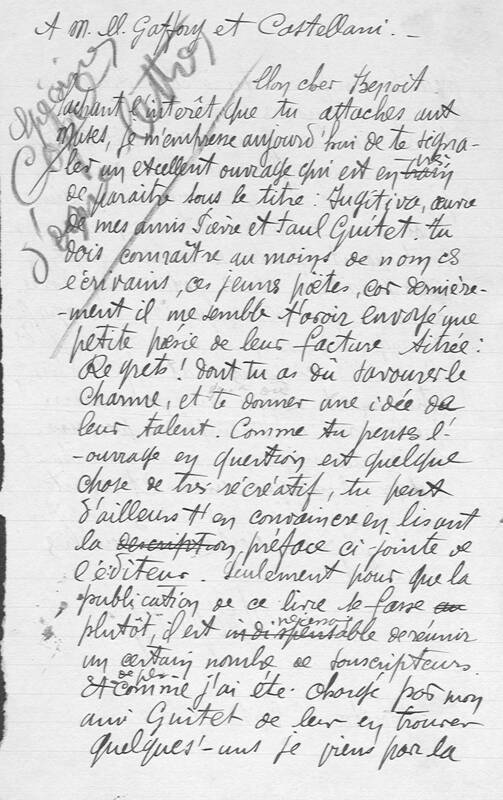 A M. M. Gaffory et Castellani. _
Mon cher Benoit
sachant l'interêt, que tu attaches aux
Muses, je m'empresse aujourd'hui de te signa-
-ler un excellent ouvrage qui est en train
de paraitre sous le titre : Fugitives, œuvre
de mes amis Pierre et Paul Guitet. Tu
dois connaître au moins de nom ces
écrivains, ces jeunes poëtes, car dernière-
-ment il me semble t'avoir envoyé une
petite poésie de leur facture titrée :
Regrets ! dont tu as du savourer le
charme, et te donner une idée de
leur talent. Comme tu penses l'-
-ouvrage en question est quelque
chose de tres récréatif, tu peut
d'ailleurs t'en convaincre en lisant
la description, préface ci-jointe de
l'éditeur. Seulement pour que la
publication de ce livre se fasse au
plutôt, il est indispensable de réunir
un certain nombre de souscripteurs.
Et comme j'ai été chargé par mon
ami Guitet de leur en trouver
quelques'-uns je viens par la